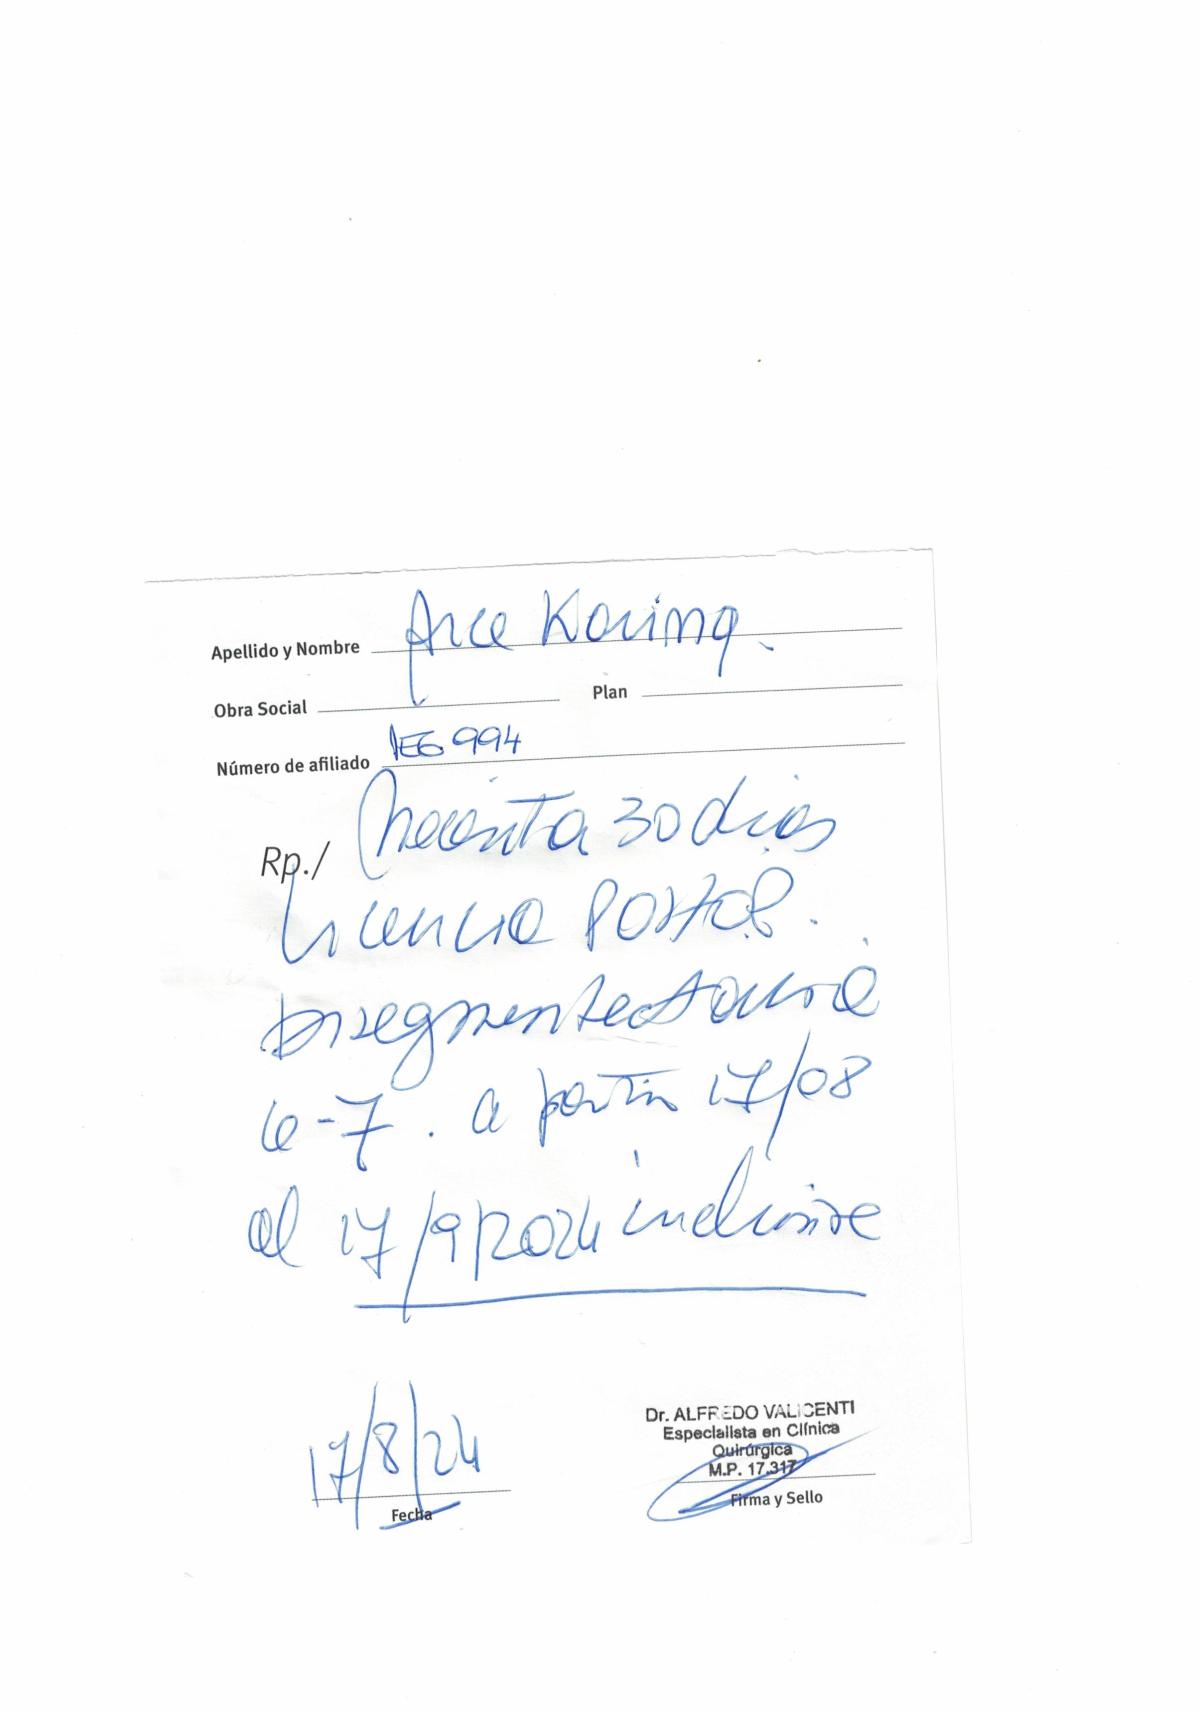 Apellido y Nombre Arce Karina.
Obra Social Plan
Número de afiliado 994
Rp./ Necesita 30 dias
licencia Postop.
bisegmentectomia
6-7. a partir 17/08
al 17/9/2024 inclusive
17/8/24
Fecha
Dr. ALFREDO VALICENTI
Especialista en Clínica
Quirúrgica
M.P. 17.317
Firma y Sello